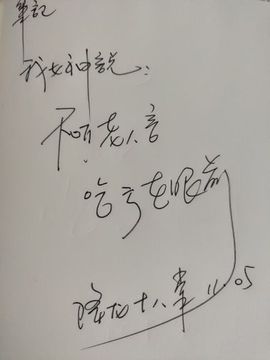 筆記
我女神說：
不听老人言
吃亏在眼前
降龙十八掌 11.05